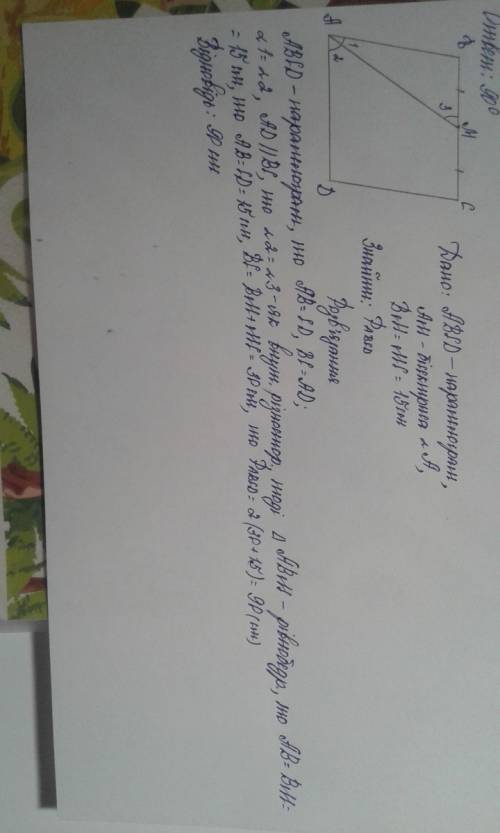 Ответ: 90°
B
M
C
A
D
1
2
3
Дано: ABCD - паралелограм,
AM - бісектриса ∠A,
BM = MC = 15 см
Знайти: P ABCD
Розв'язання
ABCD - паралелограм, то AB = CD, BC = AD;
∠1 = ∠2, AD || BC, то ∠2 = ∠3 - як внутр. різностор, тоді △ ABM - рівнобедр, то AB = BM =
= 15 см, то AB = CD = 15 см, BC = BM + MC = 30 см, то P ABCD = 2(30+15) = 90 (см)
Відповідь: 90 см